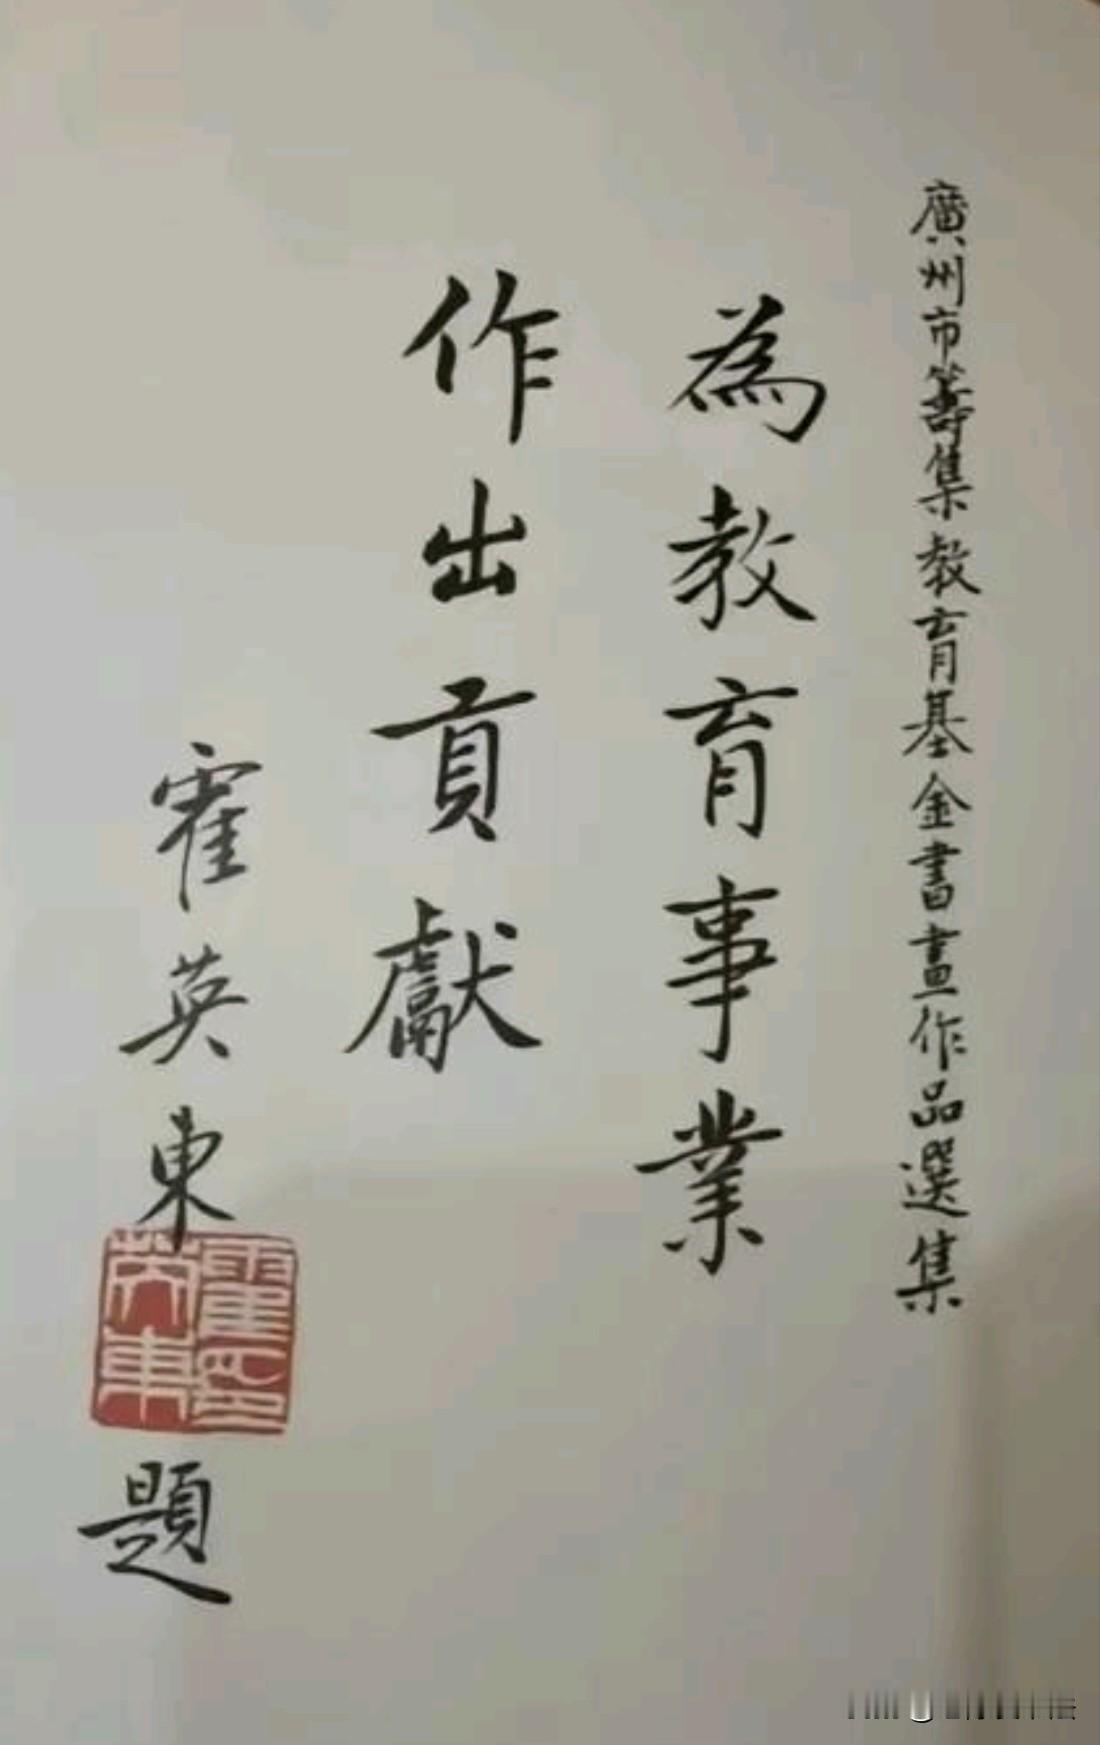 廣州市籌集教育基金書畫作品選集
為教育事業
作出貢獻
霍英東
霍英東印
題